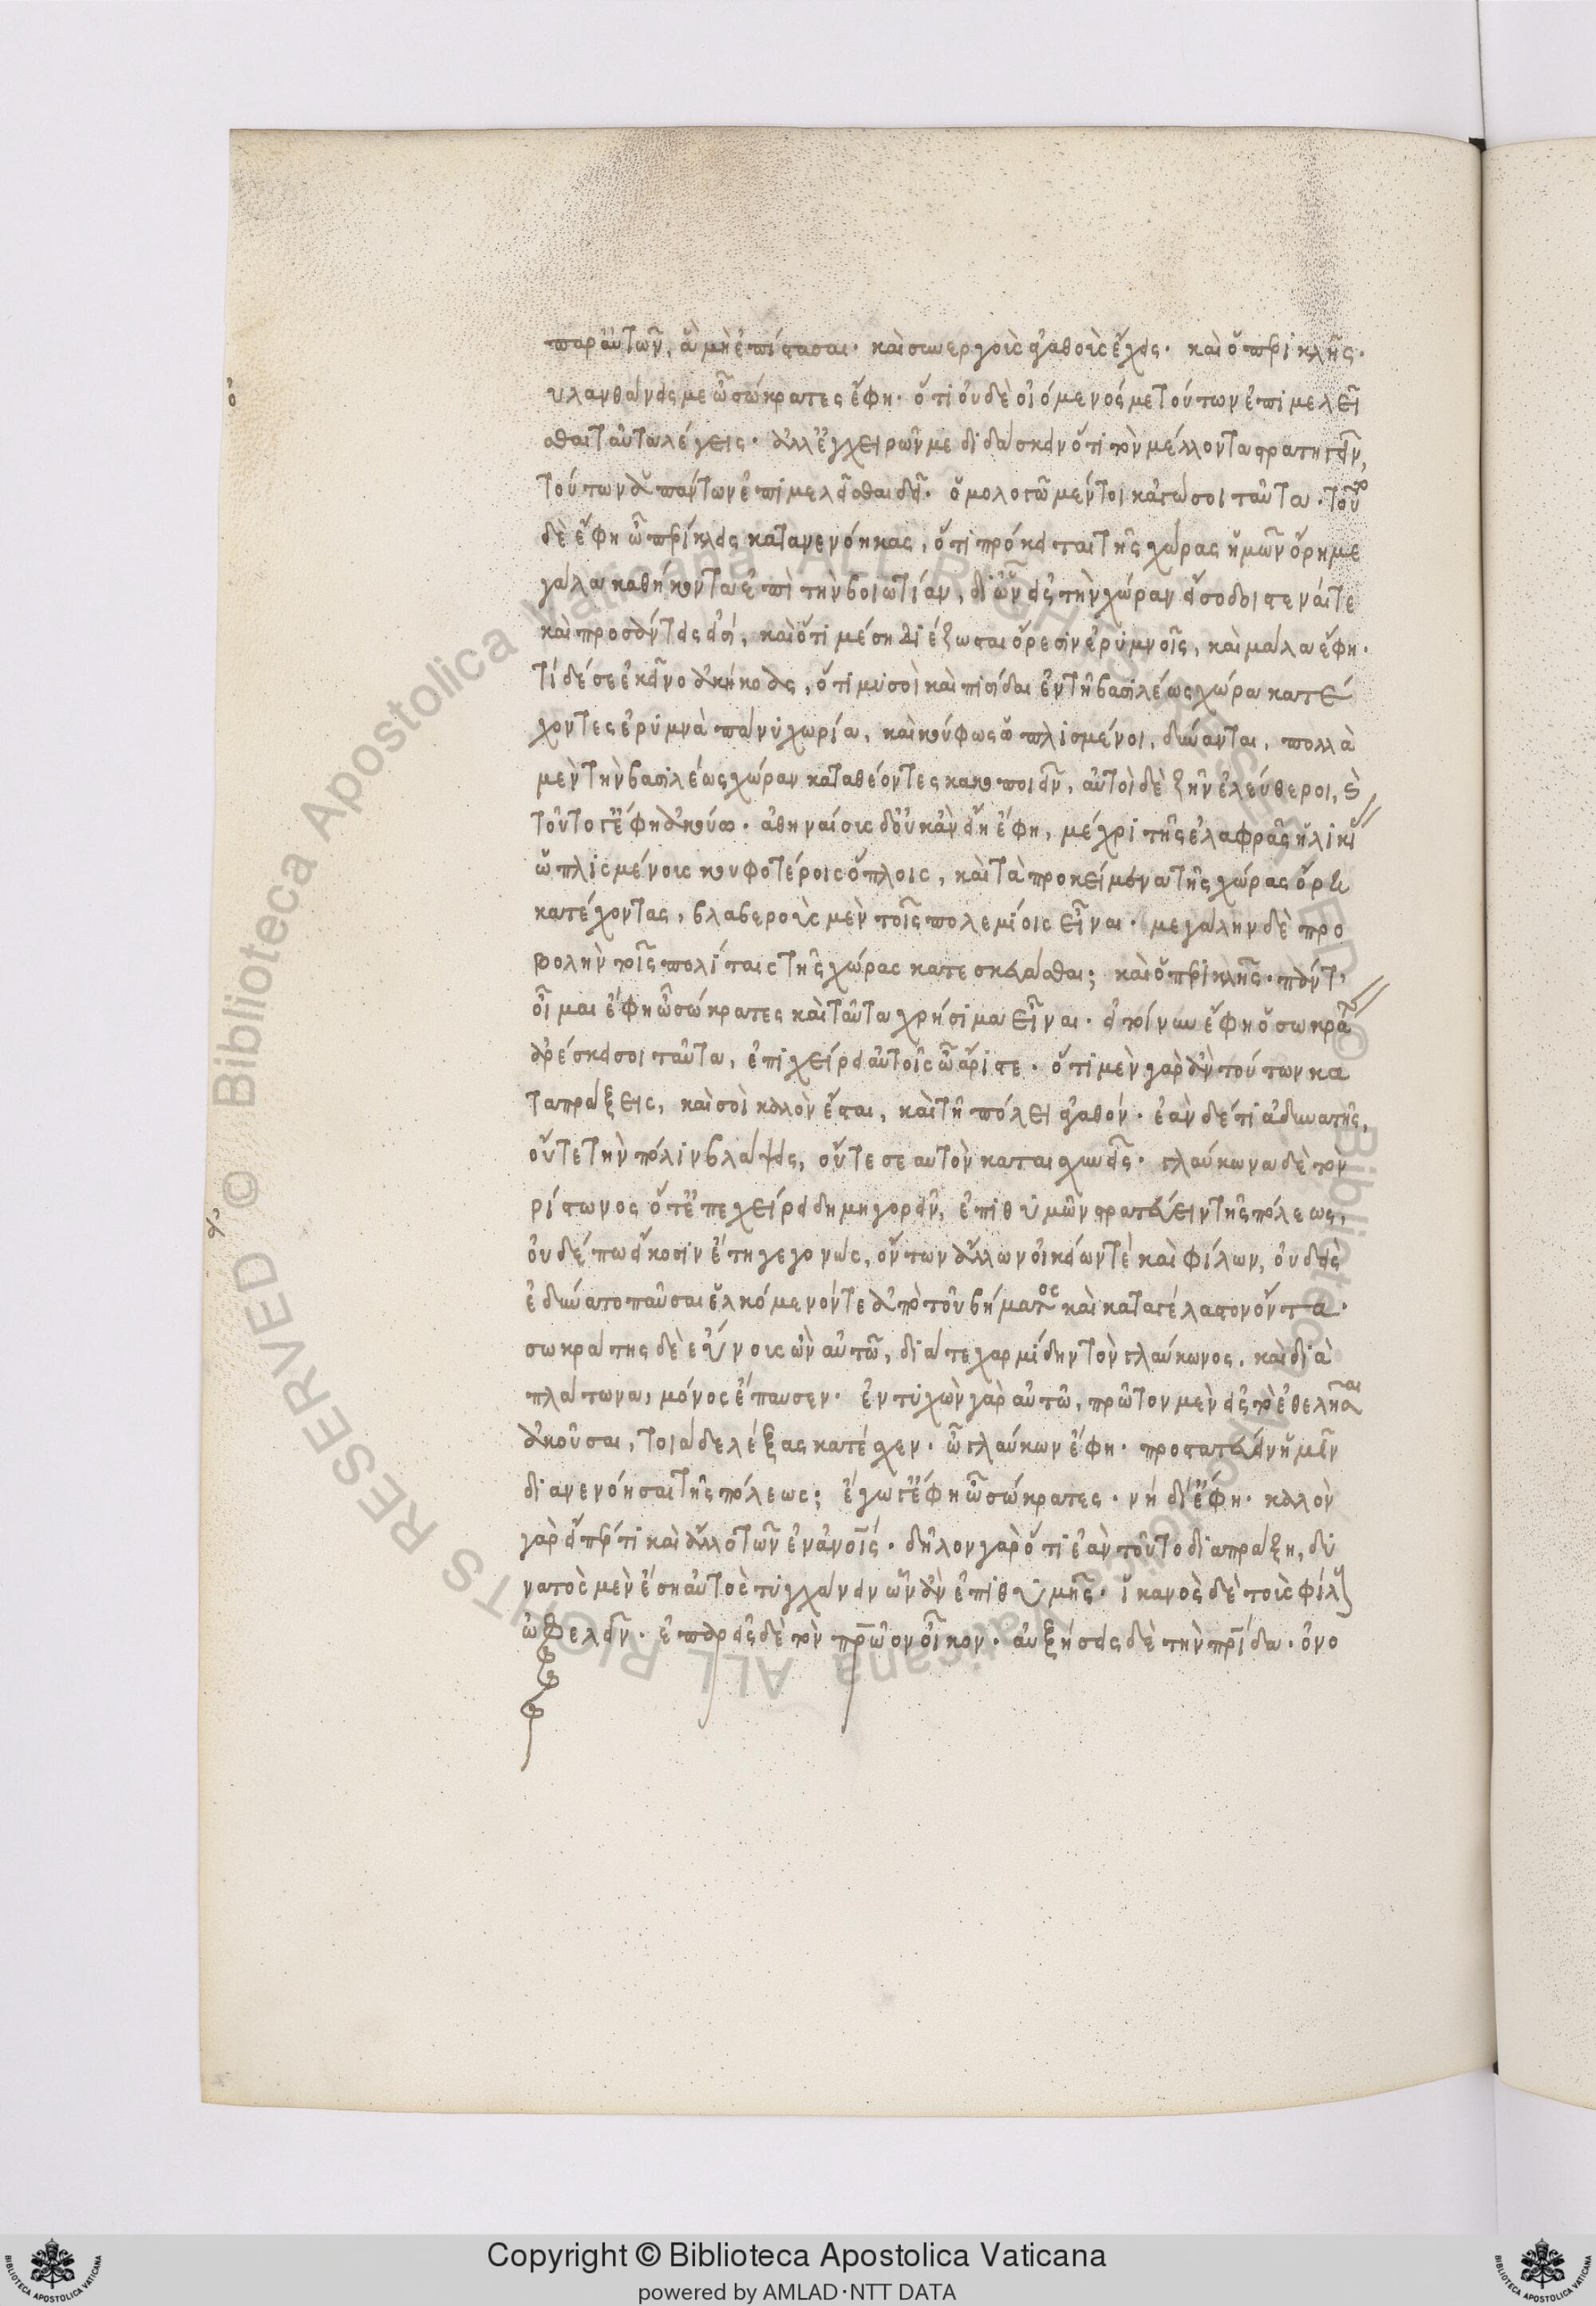 παρ' αὐτῶν, ἃ μὴ ἐπίστασαι· καὶ συνεργοὺς ἀγαθοὺς ἕξεις· καὶ ὁ περικλῆς·
ὁ
υ λανθάνεις με ὦ σώκρατες ἔφη· ὅτι οὐδὲ οἰόμενός με τούτων ἐπιμελεῖ
σθαι ταῦτα λέγεις· ἀλλ' ἐγχειρῶν με διδάσκειν ὅτι τὸν μέλλοντα στρατηγεῖν,
τούτων ἁπάντων ἐπιμελεῖσθαι δεῖ· ὁμολογῶ μέντοι κἀγώ σοι ταῦτα· τοῦτο
δὲ ἔφη ὦ περίκλεις κατανενόηκας, ὅτι πρόκειται τῆς χώρας ἡμῶν ὄρη με
γάλα καθήκοντα ἐπὶ τὴν βοιωτίαν, δι' ὧν εἰς τὴν χώραν εἴσοδοι στεναί τε
καὶ προσάντεις εἰσί, καὶ ὅτι μέση διέζωσται ὄρεσιν ἐρυμνοῖς, καὶ μάλα ἔφη·
τί δέ σε ἐκεῖνο ἀκήκοας, ὅτι μυσοὶ καὶ πισίδαι ἐν τῇ βασιλέως χώρα κατέ
χοντες ἐρυμνὰ πάνυ χωρία, καὶ κούφως ὡπλισμένοι, δύνανται, πολλὰ
μὲν τὴν βασιλέως χώραν καταθέοντες κακοποιεῖν, αὐτοὶ δὲ ζῆν ἐλεύθεροι, καὶ
τοῦτο γ' ἔφη ἀκούω· ἀθηναίους δ' οὐκ ἂν εἴη ἔφη, μέχρι τῆς ἐλαφρᾶς ἡλικί
ὡπλισμένους κουφοτέροις ὅπλοις, καὶ τὰ προκείμενα τῆς χώρας ὄρη
κατέχοντας, βλαβεροὺς μὲν τοῖς πολεμίοις εἶναι· μεγάλην δὲ προ
βολὴν τοῖς πολίταις τῆς χώρας κατεσκευάσθαι; καὶ ὁ περικλῆς· πάντ'
οἶμαι ἔφη ὦ σώκρατες καὶ ταῦτα χρήσιμα εἶναι· εἰ τοίνυν ἔφη ὁ σωκράτ
ἀρέσκει σοι ταῦτα, ἐπιχείρει αὐτοῖς ὦ ἄριστε· ὅτι μὲν γὰρ ἂν τούτων κα
ταπράξεις, καὶ σοὶ καλὸν ἔσται, καὶ τῇ πόλει ἀγαθόν· ἐὰν δέ τι ἀδυνατῇς,
οὔτε τὴν πόλιν βλάψεις, οὔτε σεαυτὸν καταισχυνεῖς· γλαύκωνα δὲ τὸν
ἀ
ρίστωνος ὅτ' ἐπεχείρει δημηγορεῖν, ἐπιθυμῶν στρατεύειν τῆς πόλεως,
οὐδέπω εἴκοσιν ἔτη γεγονώς, ὄντων ἄλλων οἰκείων τὲ καὶ φίλων, οὐδεὶς
ἐδύνατο παῦσαι ἑλκόμενόν τε ἀπὸ τοῦ βήματος καὶ καταγέλαστον ὄντα·
σωκράτης δὲ εὔνους ὢν αὐτῶ, διά τε χαρμίδην τὸν γλαύκωνος, καὶ διὰ
πλάτωνα, μόνος ἔπαυσεν· ἐντυχὼν γὰρ αὐτῶ, πρῶτον μὲν εἰς τὸ ἐθελῆσαι
ἀκοῦσαι, τοιάδε λέξας κατέσχεν· ὦ γλαύκων ἔφη· προστατεύειν ἡμῖν
διανενόησαι τῆς πόλεως; ἔγωγ' ἔφη ὦ σώκρατες· νὴ δί' ἔφη· καλὸν
γὰρ εἴπερ τι καὶ ἄλλο τῶν ἐν ἀνοις· δῆλον γὰρ ὅτι ἐὰν τοῦτο διαπράξη, δυ
νατὸς μὲν ἔση αὐτὸς τυγχάνειν ὧν ἂν ἐπιθυμῇς· ἱκανὸς δὲ τοὺς φίλους
ὠφελεῖν· ἐπαρεῖς δὲ τὸν πρῶον οἶκον· αὐξήσεις δὲ τὴν πρίδα· ὀνο
Copyright © Biblioteca Apostolica Vaticana
powered by AMLAD·NTT DATA